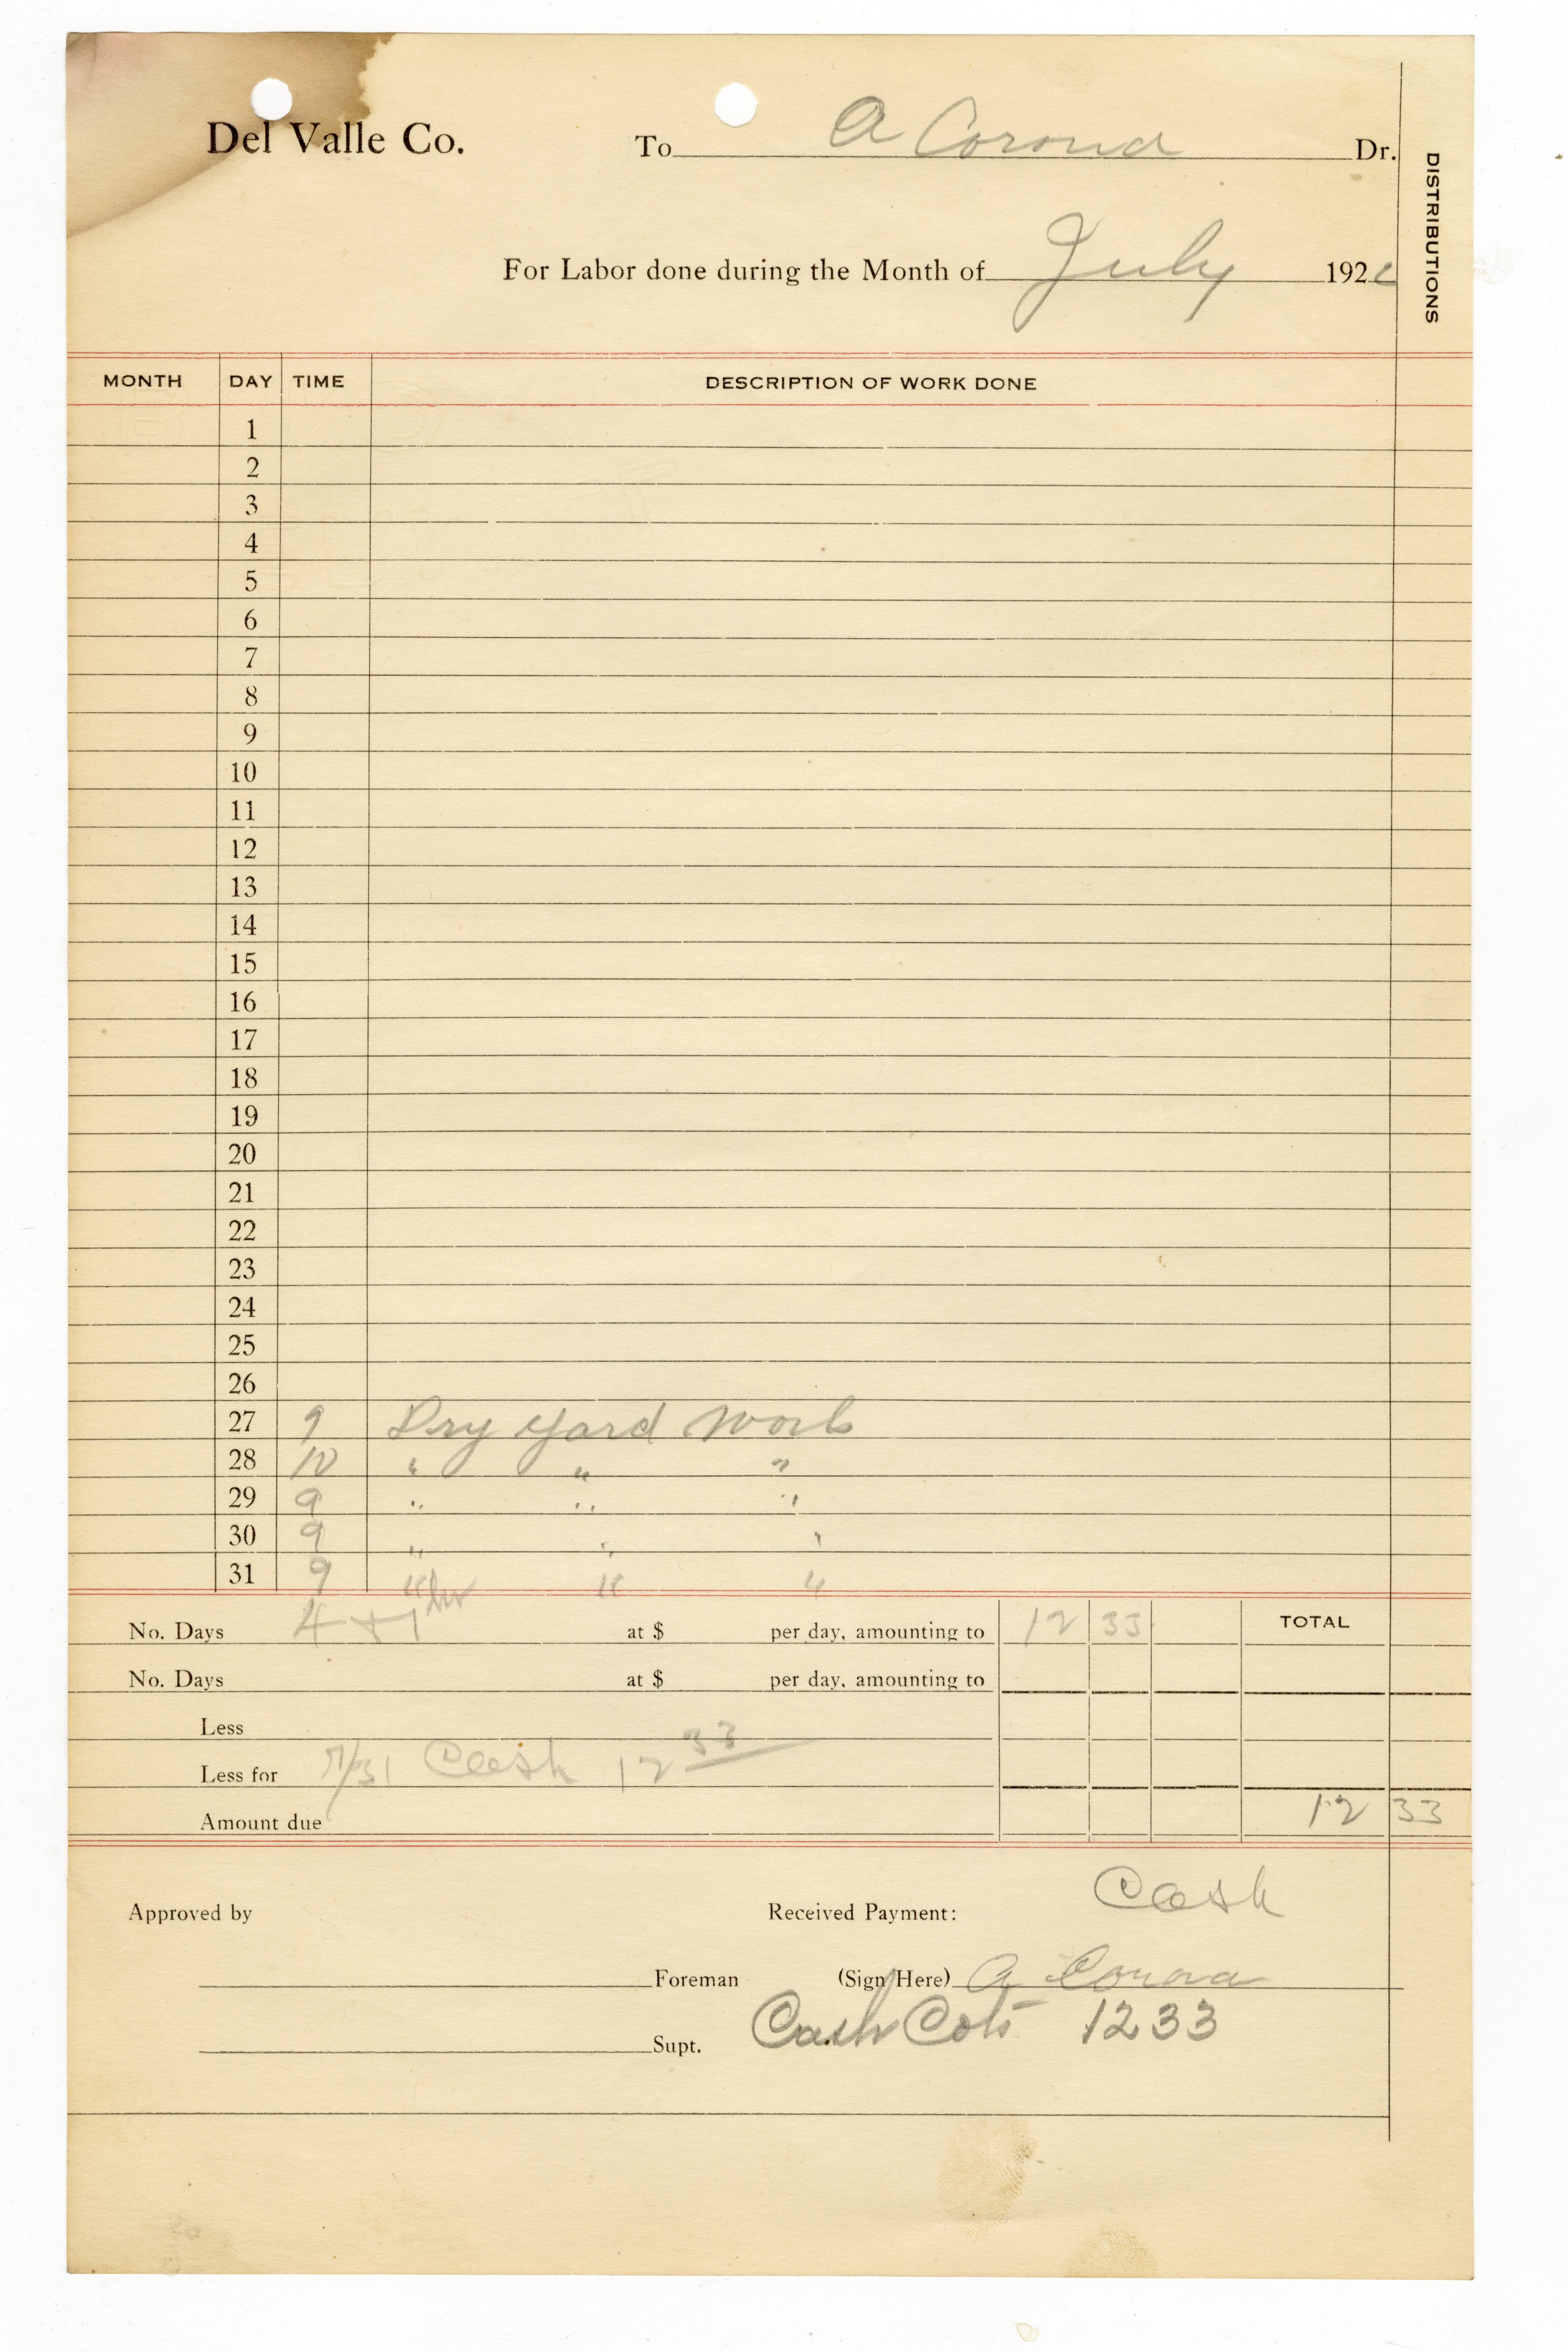 Del Valle Co. To A Corona Dr.
DISTRIBUTIONS
For Labor done during the Month of July 192
MONTH DAY TIME DESCRIPTION OF WORK DONE
1
2
3
4
5
6
7
8
9
10
11
12
13
14
15
16
17
18
19
20
21
22
23
24
25
26
27 9 Dry Yard Work
28 10 " " "
29 9 " " "
30 9 " " "
31 9 " " "
No. Days 4 + 1 hr at $ per day, amounting to 12 33 TOTAL
No. Days at $ per day, amounting to
Less
Less for 7/31 Cash 12 33
Amount due 12 33
Cash
Approved by Received Payment:
Foreman (Sign Here) A Corona
Supt. Cash 1233